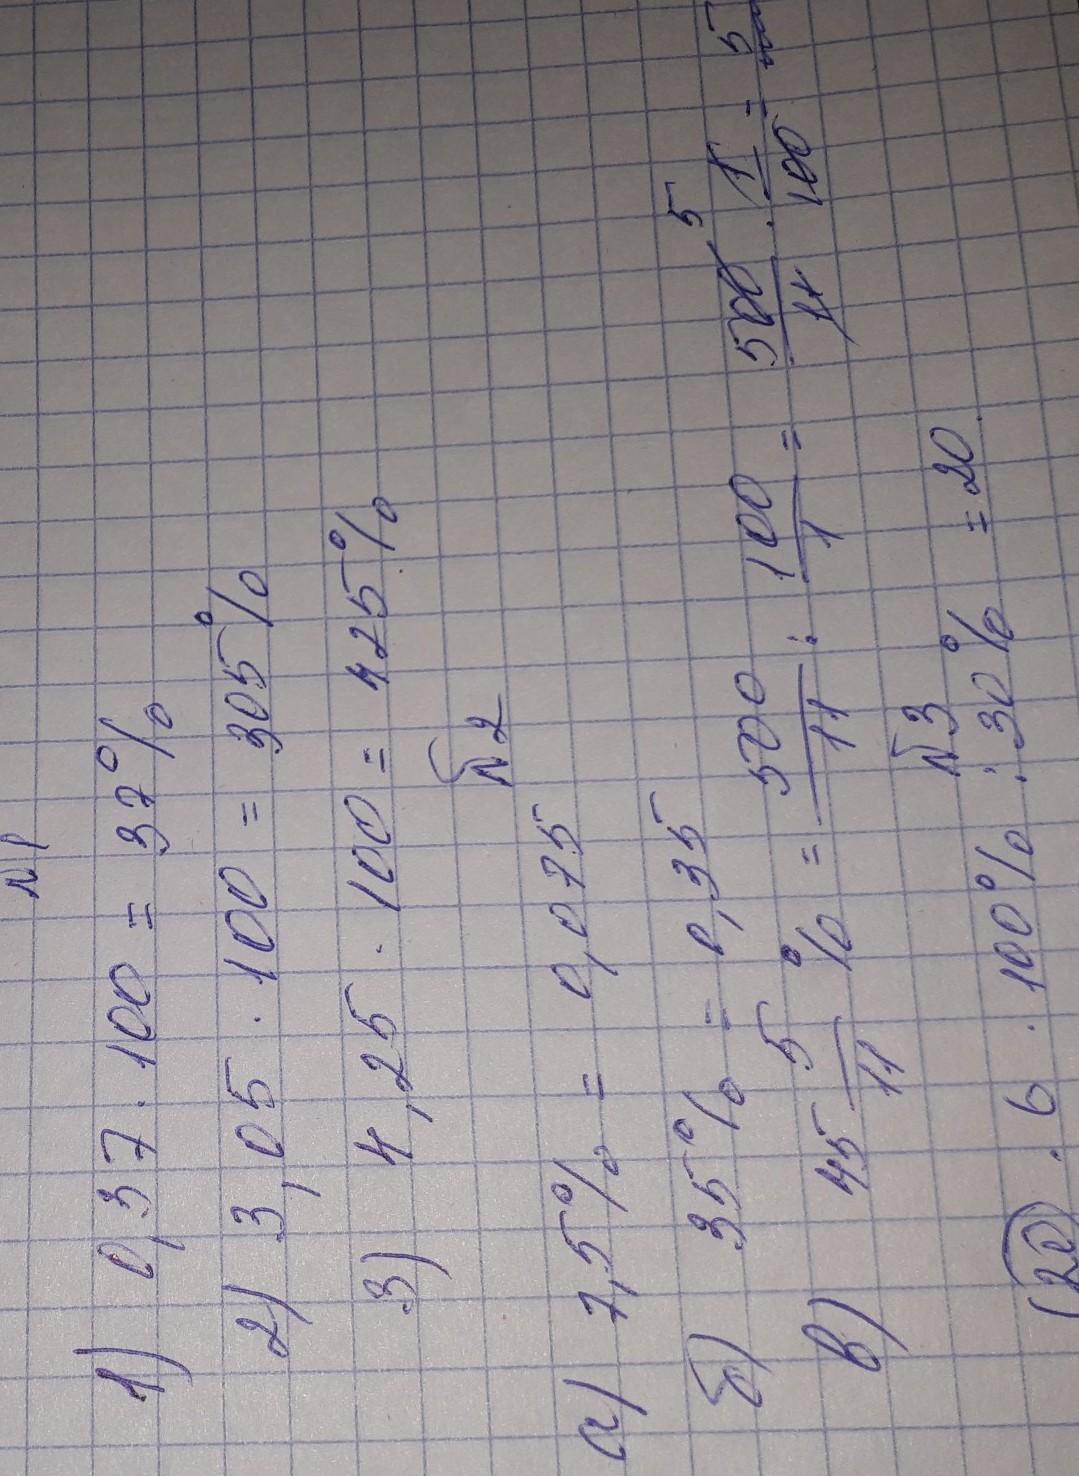 №1
1) 0,37 · 100 = 37%
2) 3,05 · 100 = 305%
3) 4,25 · 100 = 425%
№2
а) 7,5% = 0,075
б) 35% = 0,35
в) 45 5/11 % = 500/11 : 100/1 = 500/11 · 1/100 = 5
№3
6 · 100% : 30% = 20
(20)